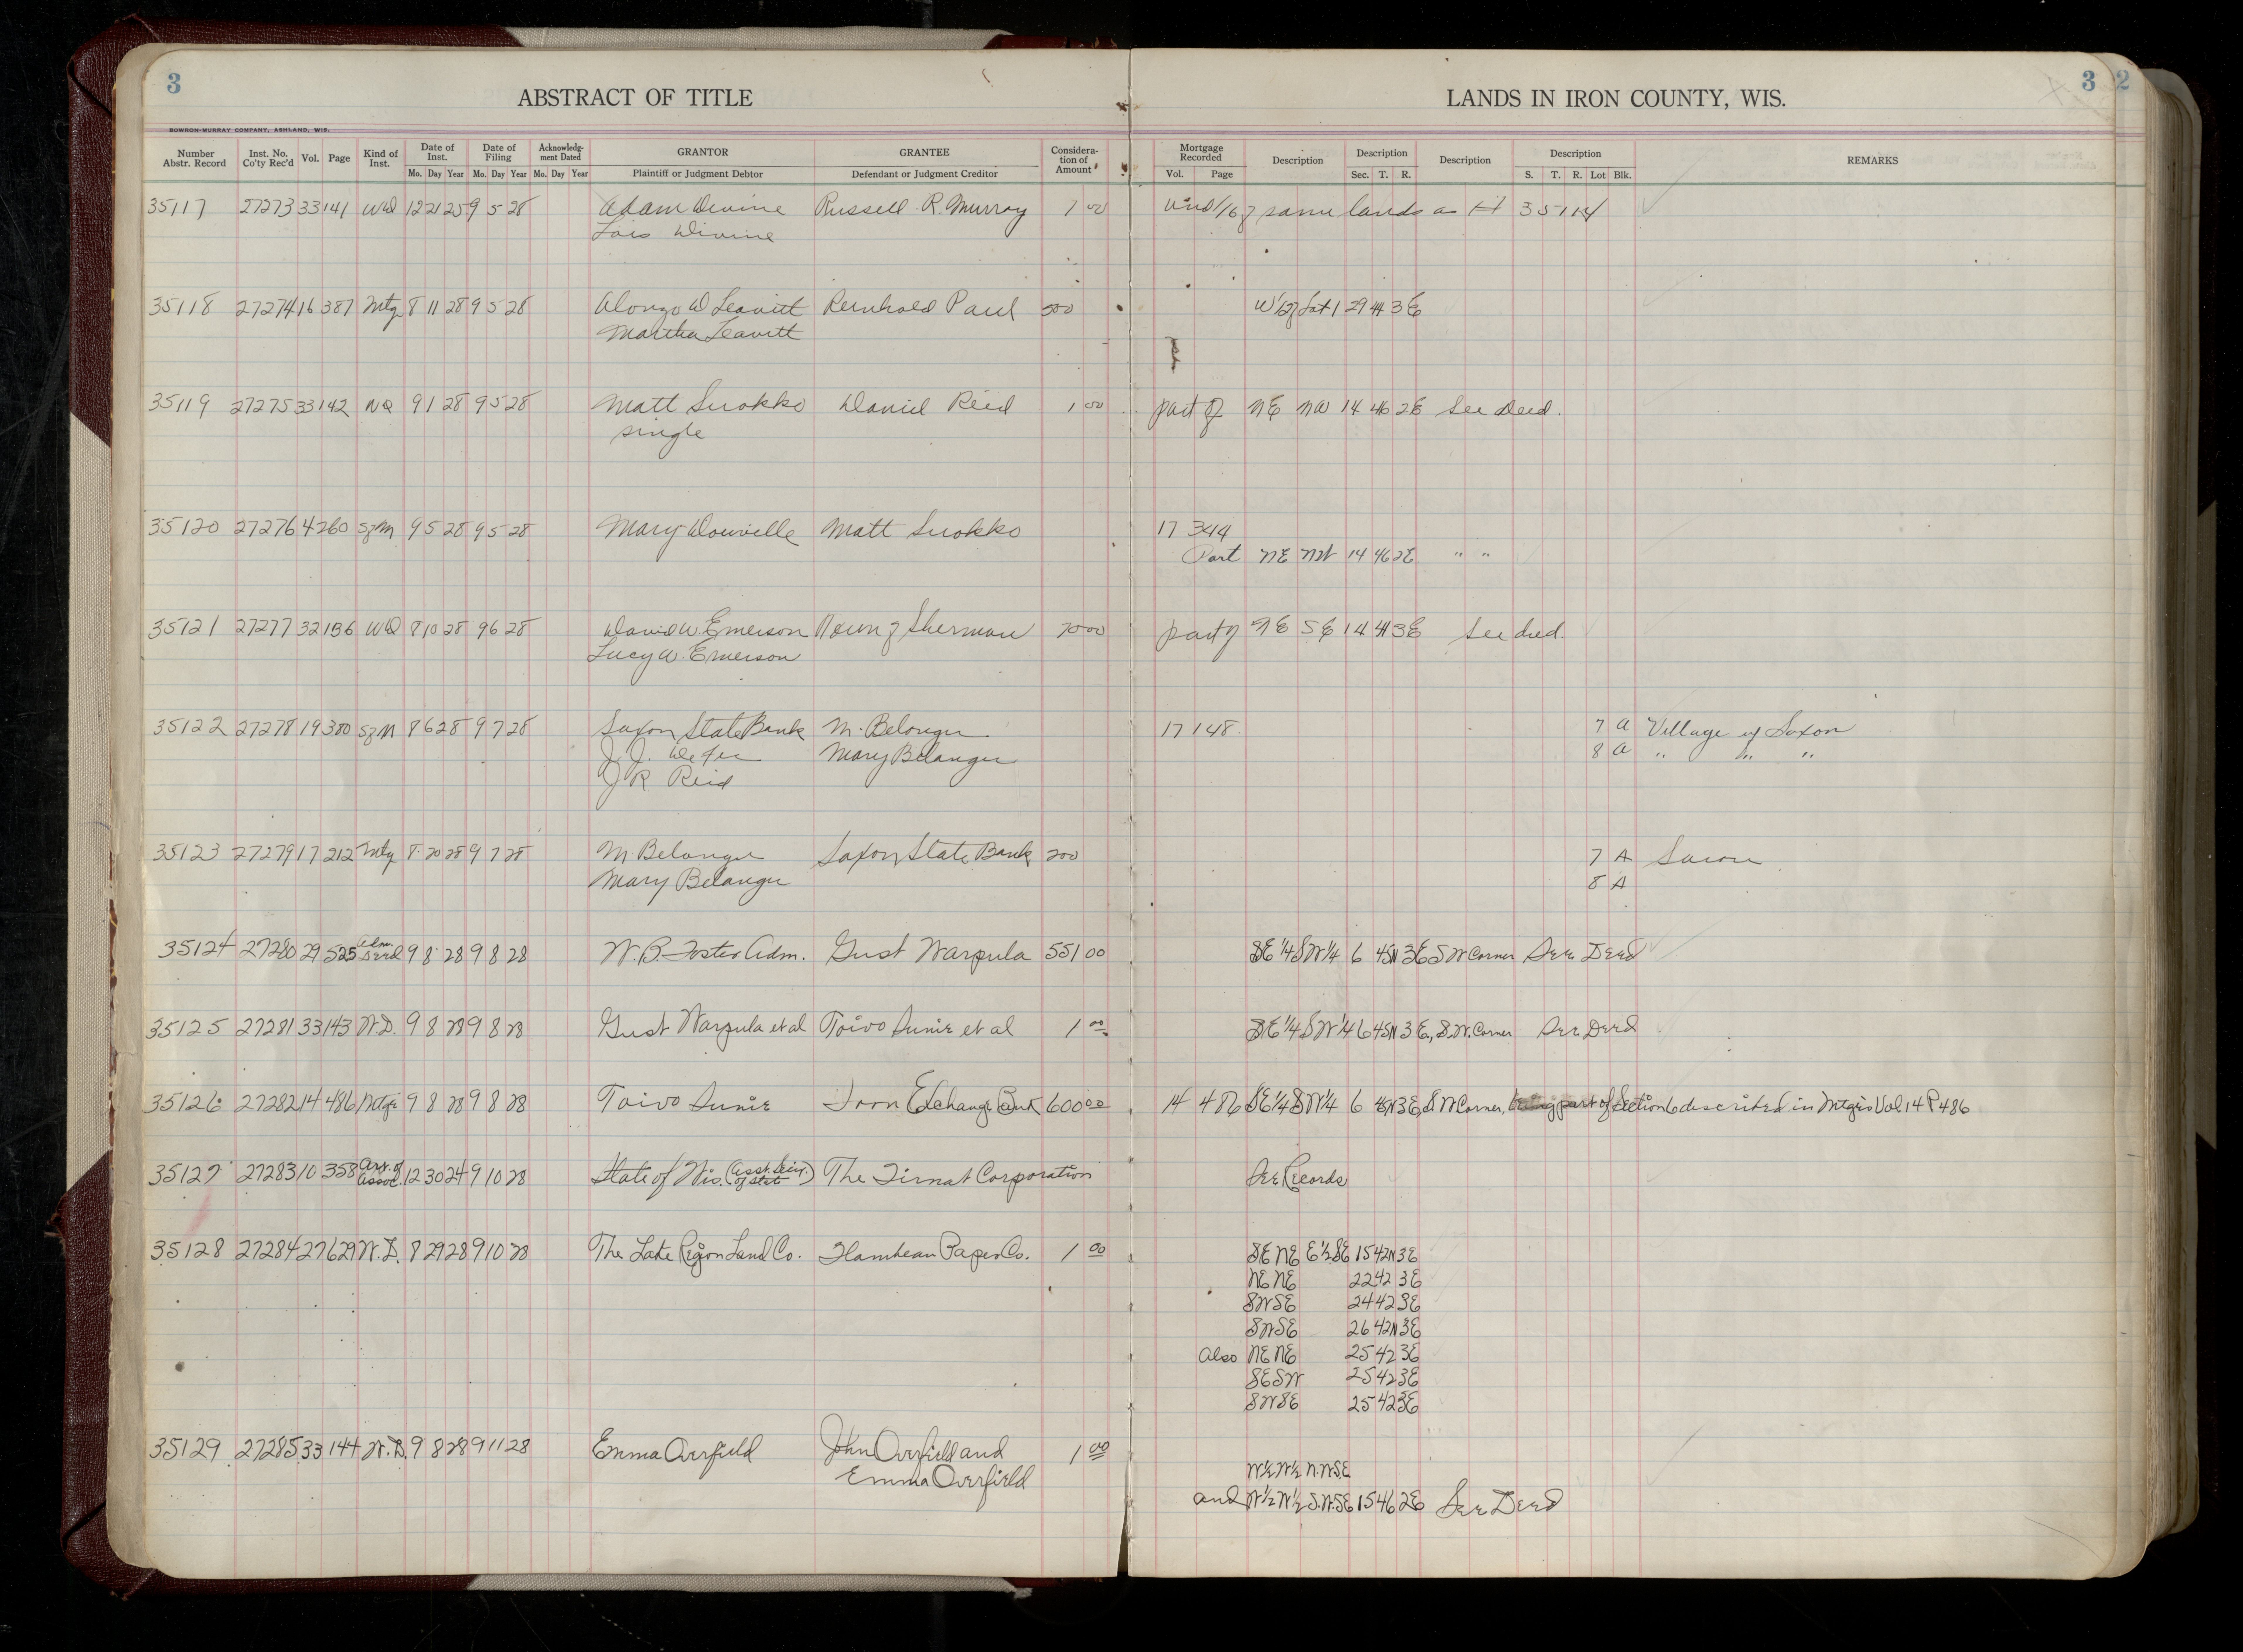 3
ABSTRACT OF TITLE
LANDS IN IRON COUNTY, WIS.
3 2
BOWRON-MURRAY COMPANY, ASHLAND, WIS.
Number Abstr. Record Inst. No. Co'ty Rec'd Vol. Page Kind of Inst. Date of Inst. Mo. Day Year Date of Filing Mo. Day Year Acknowledg-ment Dated Mo. Day Year GRANTOR Plaintiff or Judgment Debtor GRANTEE Defendant or Judgment Creditor Considera-tion of Amount Mortgage Recorded Vol. Page Description Description Sec. T. R. Description Description S. T. R. Lot Blk. REMARKS
35117 27273 33 141 WD 12 21 25 9 5 28 Adam Divine Russell R. Murray 1 00 und 1/16 of same lands as 35114
Lois Divine
35118 27274 16 387 Mtg 8 11 28 9 5 28 Alonzo D Leavitt Reinhold Paul 500 W 1/2 of Lot 1 29 44 3E
Martha Leavitt
35119 27275 33 142 WD 9 1 28 9 5 28 Matt Suokko Daniel Reid 1 00 part of NE NW 14 46 2E See Deed.
single
35120 27276 4 260 SzM 9 5 28 9 5 28 Mary Douville Matt Suokko 17 344
Part NE NW 14 46 2E " "
35121 27277 32 136 WD 8 10 28 9 6 28 David W Emerson Town of Sherman 70 00 part of NE SE 14 41 3E See deed.
Lucy W. Emerson
35122 27278 19 380 SzM 8 6 28 9 7 28 Saxon State Bank M. Belanger 17 148. 7 A Village of Saxon
J. J. Defer Mary Belanger 8 A " " "
J R Reid
35123 27279 17 212 Mtg 8 20 28 9 7 28 M. Belanger Saxon State Bank 200 7 A Saxon
Mary Belanger 8 A
35124 27280 29 525 Adm. Deed 9 8 28 9 8 28 W. B. Foster Adm. Gust Warpula 551 00 SE 1/4 SW 1/4 6 45N 3E SW Corner See Deed
35125 27281 33 143 W.D. 9 8 28 9 8 28 Gust Warpula et al Toivo Sunie et al 1 00 SE 1/4 SW 1/4 6 45N 3E., S.W. Corner See Deed
35126 27282 14 486 Mtge 9 8 28 9 8 28 Toivo Sunie Iron Exchange Bank 600 00 14 486 SE 1/4 SW 1/4 6 45N 3E, SW Corner, being part of Section 6 described in Mtges Vol 14 P 486
35127 27283 10 358 Art. of Assoc. 12 30 24 9 10 28 State of Wis. (Asst. Secy. of State) The Tirnat Corporation See Records
35128 27284 27 629 W.D. 8 29 28 9 10 28 The Lake Region Land Co. Flambeau Paper Co. 1 00 SE NE E 1/2 SE 15 42N 3E
NE NE 22 42 3E
SW SE 24 42 3E
SW SE 26 42N 3E
Also NE NE 25 42 3E
SE SW 25 42 3E
SW SE 25 42 3E
35129 27285 33 144 W.D. 9 8 28 9 11 28 Emma Overfield John Overfield and 1 00
Emma Overfield W 1/2 W 1/2 N.W.S.E
and W 1/2 W 1/2 S.W.SE 15 46 2E See Deed